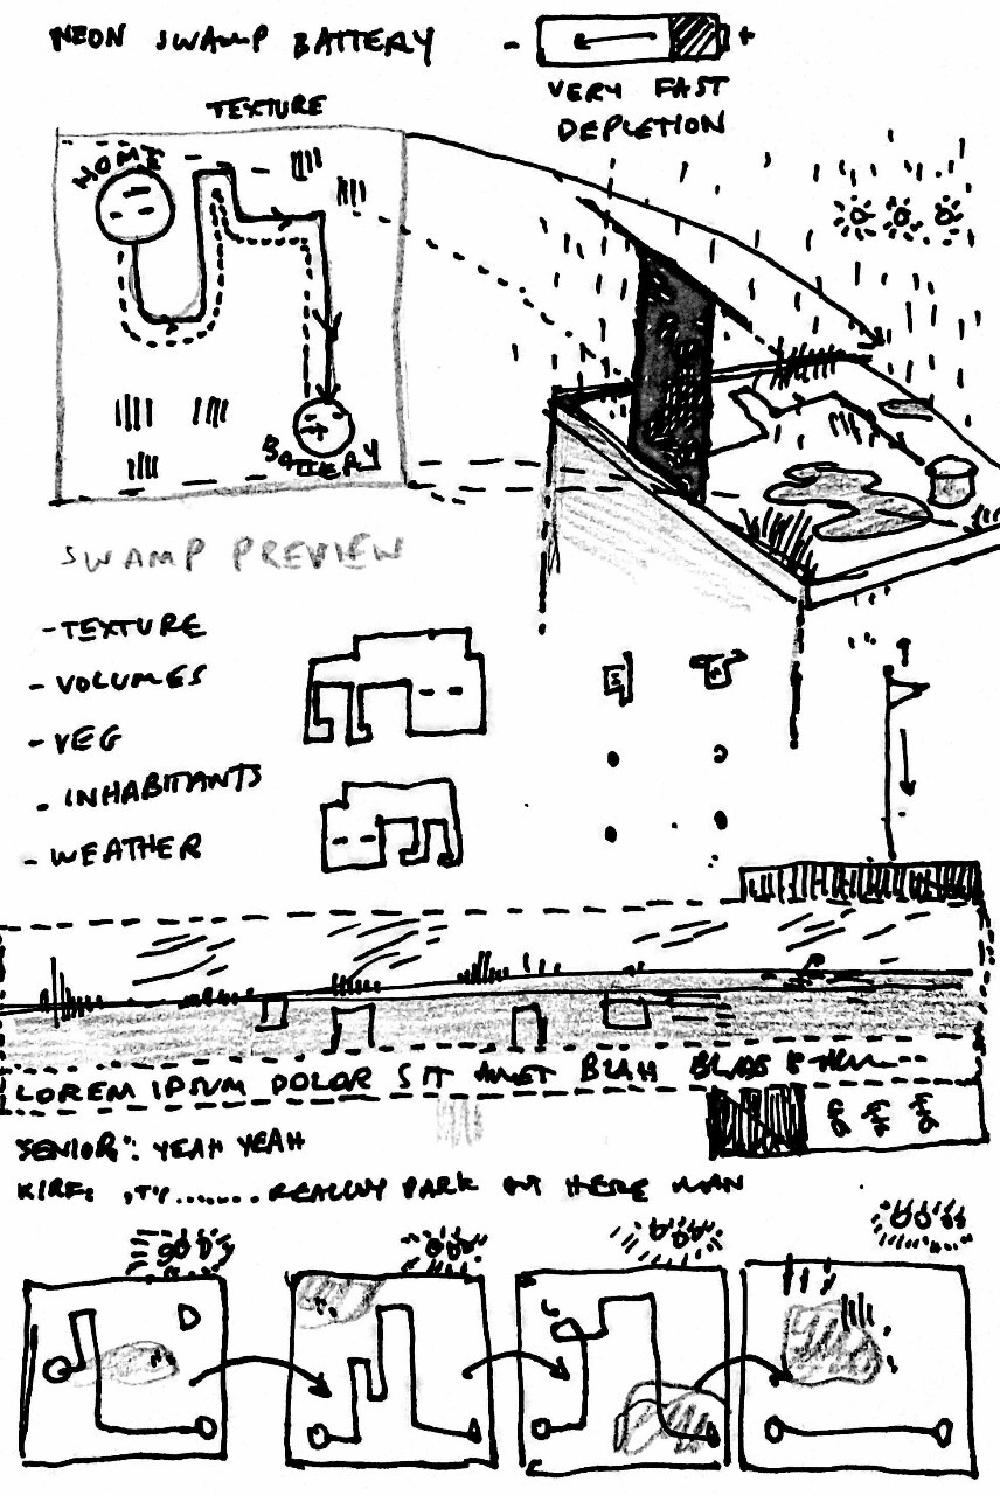 NEON SWAMP BATTERY
- +
VERY FAST
DEPLETION
TEXTURE
HOME
BATTERY
SWAMP PREVIEW
- TEXTURE
- VOLUMES
- VEG
- INHABITANTS
- WEATHER
LOREM IPSUM DOLOR SIT AMET BLAH
"SENIOR": YEAH YEAH
REALLY PARK HERE MAN